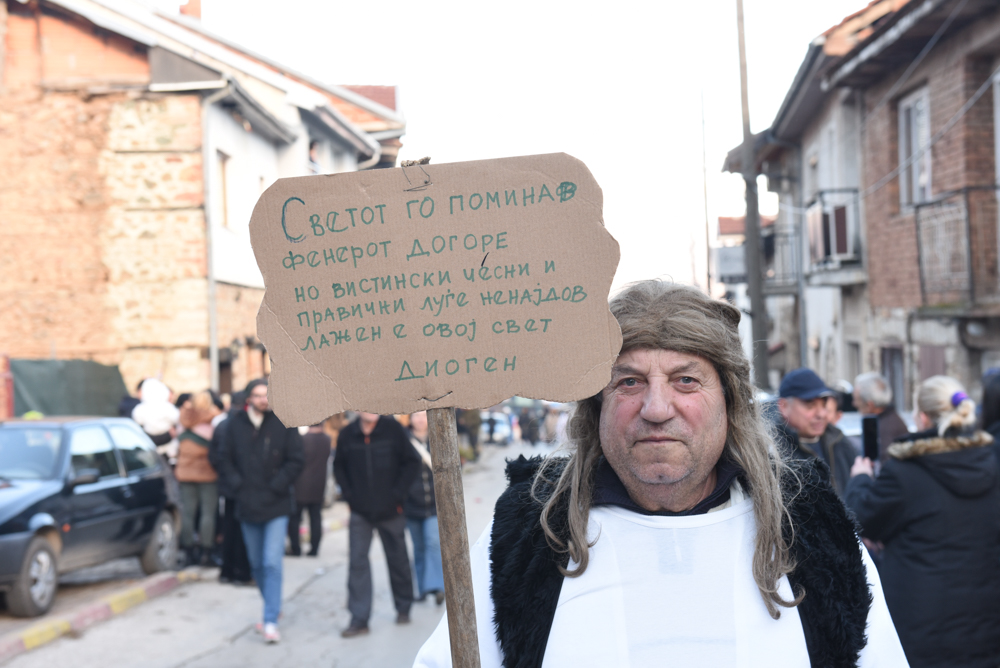 Светот го поминав
фенерот догоре
но вистински чесни и
правични луѓе ненајдов
лажен е овој свет
Диоген